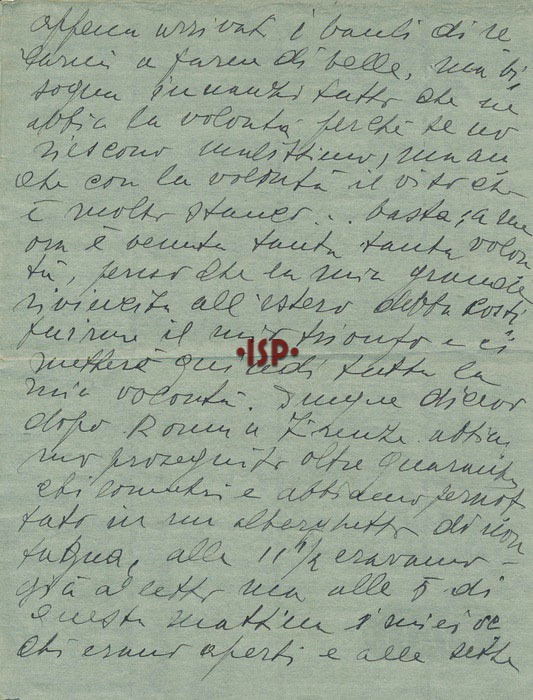 appena arrivati i bauli di re
carmi a farne di belle, ma bi
sogna innanzi tutto che ne
abbia la volontà, perché se no
riescono malissimo, ma an
che con la volontà il viso che
è molto stanco... basta; a me
ora è venuta tanta tanta volon
tà, penso che la mia grande
rivincita all'estero debba costi
tuire il mio trionfo e ci
•ISP•
metterò quindi tutta la
mia volontà. Dunque dicevo
dopo Roma a Firenze abbia
mo proseguito oltre quaranta
chilometri e abbiamo pernot
tato in un alberghetto di mon
tagna, alle 11 1/2 eravamo
già a letto ma alle 5 di
questa mattina i miei oc
chi erano aperti e alle sette